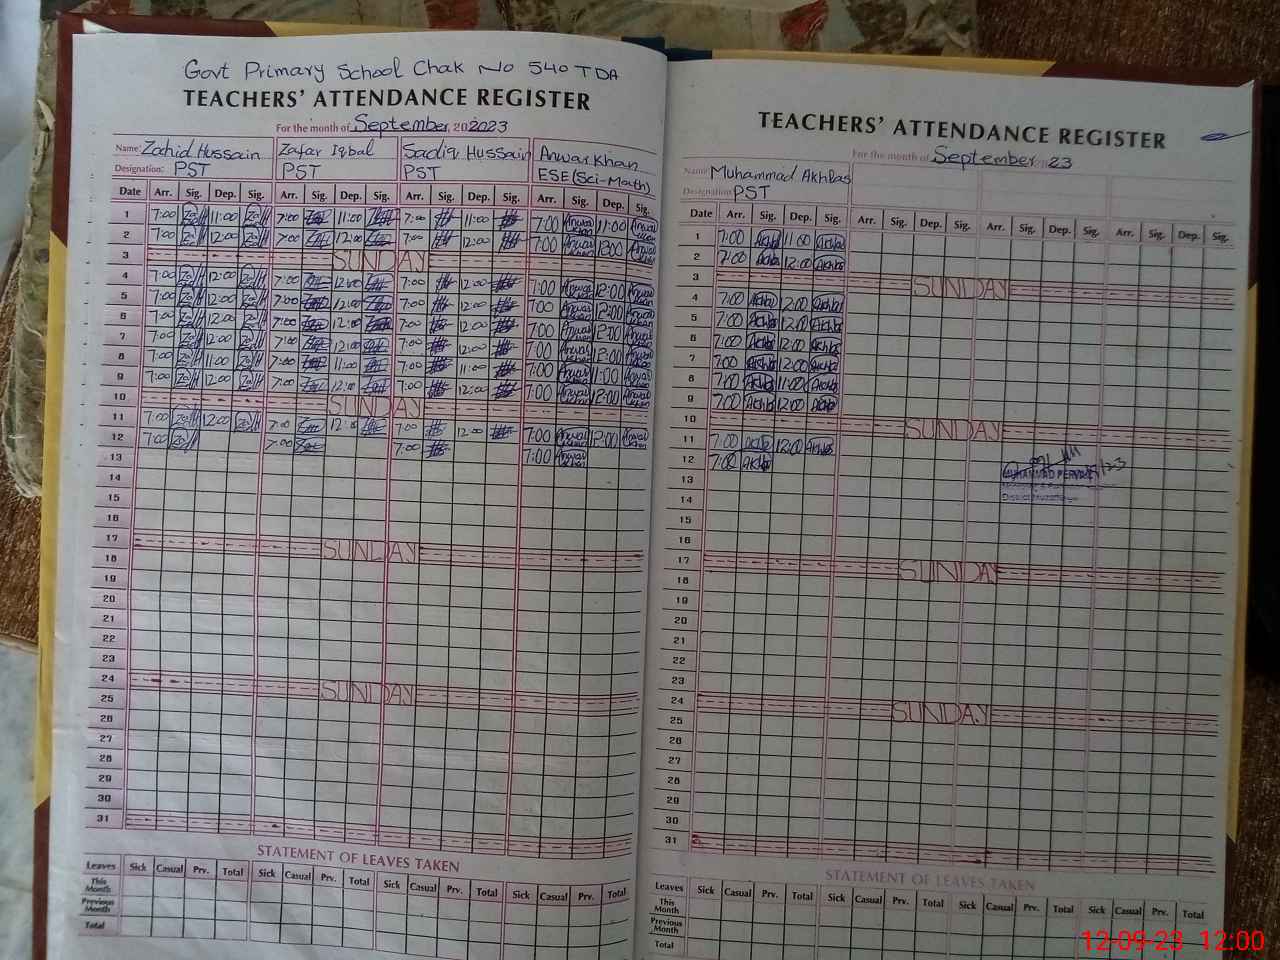 Govt Primary School Chak No 540 TDA
TEACHERS' ATTENDANCE REGISTER
For the month of September, 20 2023
Name: Zahid Hussain Zafar Iqbal Sadiq Hussain Anwar Khan
Designation: PST PST PST ESE (Sci-Math)
Date Arr. Sig. Dep. Sig. Arr. Sig. Dep. Sig. Arr. Sig. Dep. Sig. Arr. Sig. Dep. Sig.
1 7:00 11:00 7:00 11:00 7:00 11:00 7:00 Anwar Khan 11:00 Anwar Khan
2 7:00 12:00 7:00 12:00 7:00 12:00 7:00 Anwar Khan Anwar Khan
3 SUNDAY
4 7:00 12:00 7:00 12:00 7:00 12:00 7:00 Anwar Khan 12:00 Anwar Khan
5 7:00 12:00 7:00 12:00 7:00 12:00 7:00 Anwar Khan 12:00 Anwar Khan
6 7:00 12:00 7:00 12:00 7:00 12:00 7:00 Anwar Khan 12:00 Anwar Khan
7 7:00 12:00 7:00 12:00 7:00 12:00 7:00 Anwar Khan 12:00 Anwar Khan
8 7:00 11:00 7:00 11:00 7:00 11:00 7:00 Anwar Khan 11:00 Anwar Khan
9 7:00 12:00 7:00 12:00 7:00 12:00 7:00 Anwar Khan 12:00 Anwar Khan
10 SUNDAY
11 7:00 12:00 7:00 12:00 7:00 12:00 7:00 Anwar Khan 12:00 Anwar Khan
12 7:00 7:00 7:00 7:00 Anwar Khan
13
14
15
16
17 SUNDAY
18
19
20
21
22
23
24 SUNDAY
25
26
27
28
29
30
31
STATEMENT OF LEAVES TAKEN
Leaves Sick Casual Prv. Total Sick Casual Prv. Total Sick Casual Prv. Total Sick Casual Prv. Total
This Month
Previous Month
Total
TEACHERS' ATTENDANCE REGISTER
For the month of September 23
Name Muhammad Akhbas
Designation PST
Date Arr. Sig. Dep. Sig. Arr. Sig. Dep. Sig. Arr. Sig. Dep. Sig. Arr. Sig. Dep. Sig.
1 7:00 Akhbas 11:00 Akhbas
2 7:00 Akhbas 12:00 Akhbas
3 SUNDAY
4 7:00 Akhbas 12:00 Akhbas
5 7:00 Akhbas 12:00 Akhbas
6 7:00 Akhbas 12:00 Akhbas
7 7:00 Akhbas 12:00 Akhbas
8 7:00 Akhbas 11:00 Akhbas
9 7:00 Akhbas 12:00 Akhbas
10 SUNDAY
11 7:00 Akhbas 12:00 Akhbas
12 7:00 Akhbas
13 MUHAMMAD PERVAIZ
14 District
15
16
17 SUNDAY
18
19
20
21
22
23
24 SUNDAY
25
26
27
28
29
30
31
STATEMENT OF LEAVES TAKEN
Leaves Sick Casual Prv. Total Sick Casual Prv. Total Sick Casual Prv. Total Sick Casual Prv. Total
This Month
Previous Month
Total
12-09-23 12:00